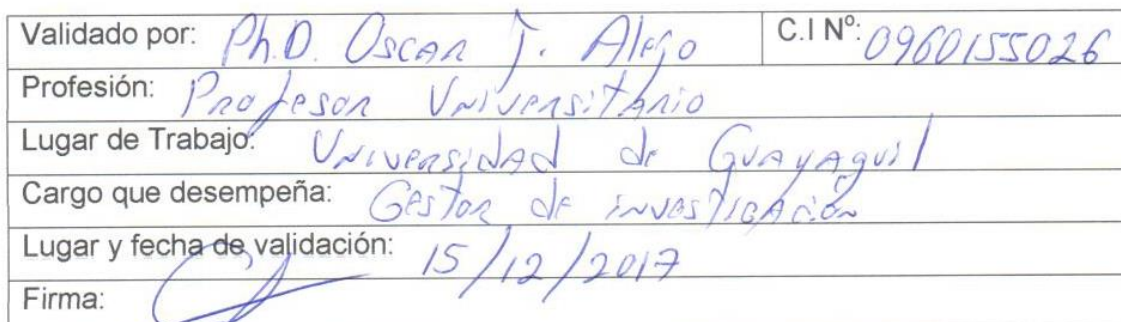 Validado por: Ph.D. Oscar J. Alejo C.I Nº: 0960155026
Profesión: Profesor Universitario
Lugar de Trabajo: Universidad de Guayaquil
Cargo que desempeña: Gestor de investigación
Lugar y fecha de validación: 15/12/2017
Firma: